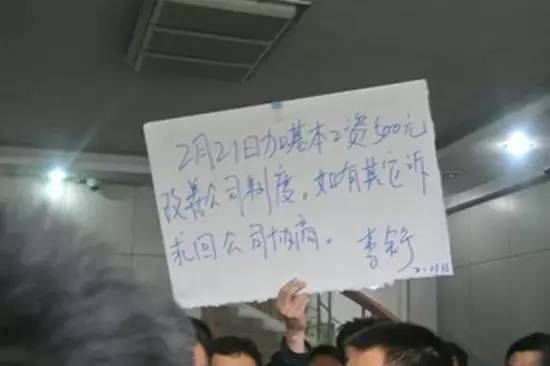 2月21日加基本工资500元
改善公司制度。如有其它诉
求回公司协商。 李